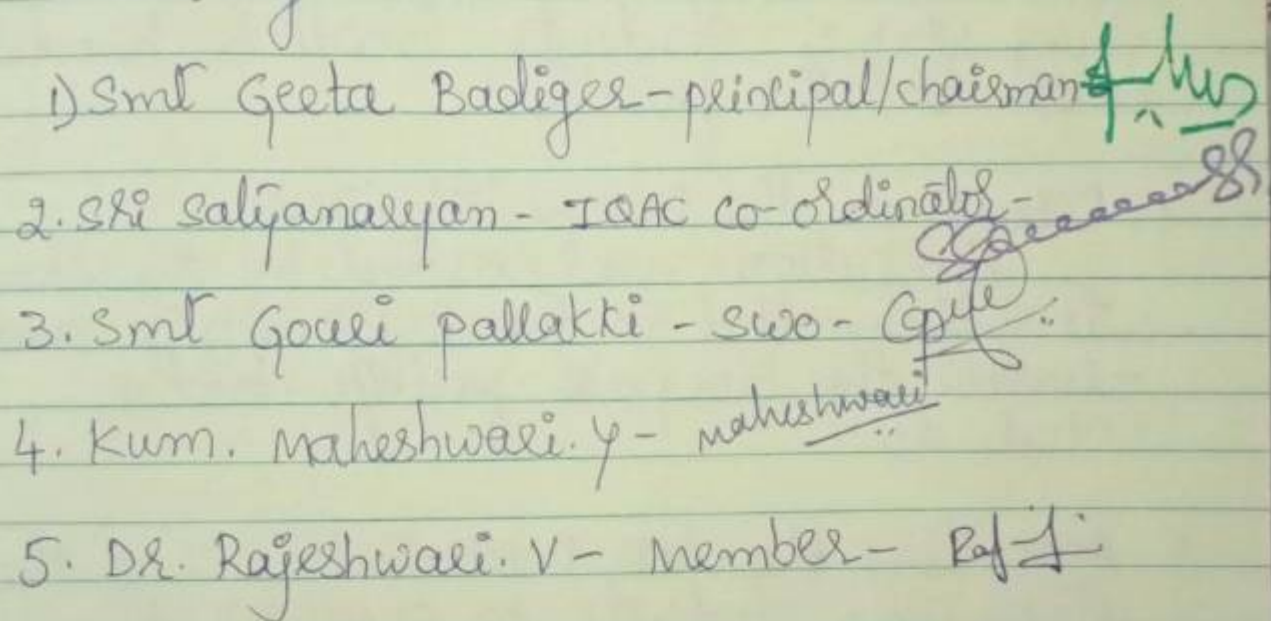 1) Smt Geeta Badiger - principal/chairman
2. Sri Satyanaryan - IQAC co-ordinator -
3. Smt Gouri pallakki - SWO -
4. Kum. Maheshwari. Y - Maheshwari
5. DR. Rajeshwari. V - Member - Raj